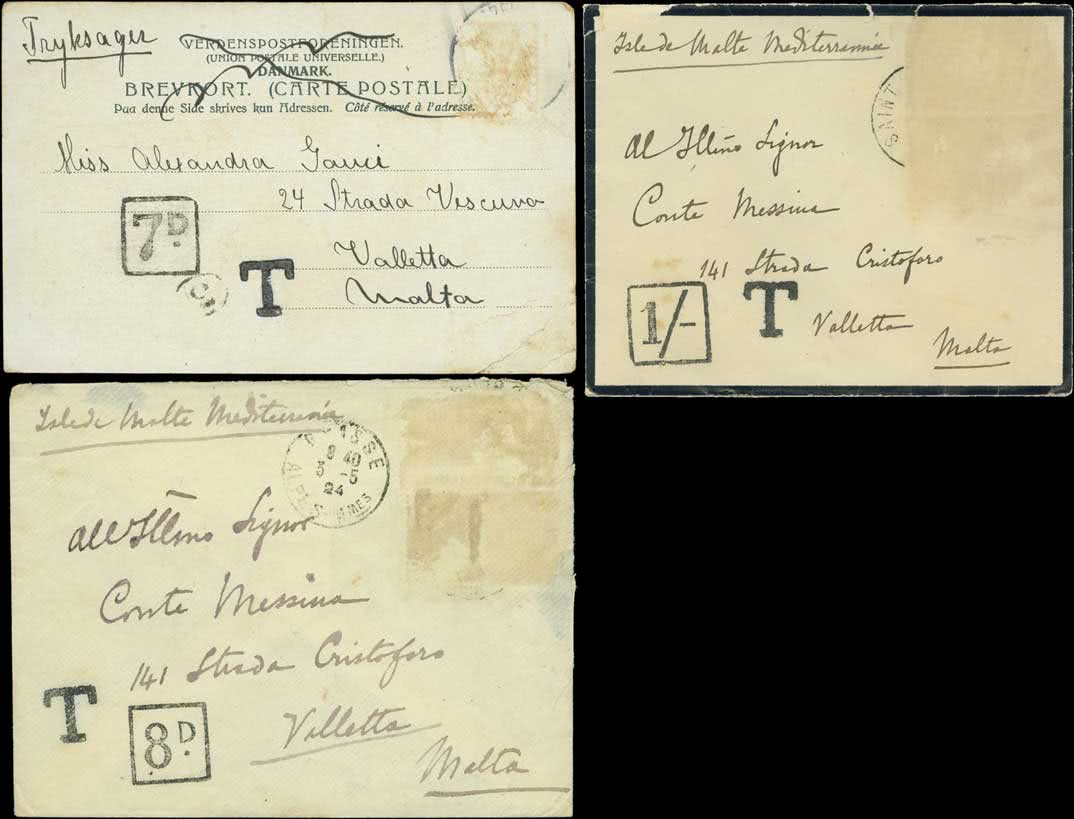 Tryksager
VERDENSPOSTFORENINGEN.
(UNION POSTALE UNIVERSELLE.)
DANMARK.
BREVKORT. (CARTE POSTALE.)
Paa denne Side skrives kun Adressen. Côté réservé à l'adresse.
Miss Alexandra Gauci
24 Strada Vescuvo
Valletta
Malta
7D.
T
Isle de Malte Mediterrannée
SAINT
Al Illmo Signor
Conte Messina
141 Strada Cristoforo
Valletta
Malta
1/-
T
Isle de Malte Mediterranée
GRASSE
8 40
3 -5
24
ALPES
All Illmo Signor
Conte Messina
141 Strada Cristoforo
Valletta
Malta
T
8D.